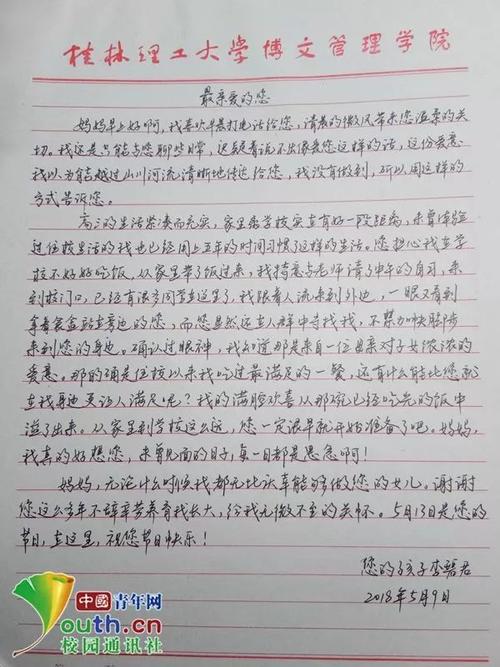 桂林理工大学博文管理学院
最亲爱的您
妈妈早上好啊，我喜欢早晨打电话给您，清晨的微风带来您温柔的关
切。我还是只能与您聊些日常，迟疑着说不出像爱您这样的话，这份爱意
我以为能越过山川河流清晰地传达给您，我没有做到，所以用这样的
方式告诉您。
高三的生活紧凑而充实，家里离学校实在有好一段距离，未曾体验
过住校生活的我也已经用上五年的时间习惯了这样的生活。您担心我在学
校不好好吃饭，从家里带了饭过来，我揣着与老师请了中午的自习，来
到校门口，已经有很多同学在这里了，我跟着人流来到外边，一眼又看到
拿着食盒站在旁边的您，而您显然还在人群中寻找我，不禁加快脚步
来到您的身边。确认过眼神，我知道那是来自一位母亲对子女浓浓的
爱意。那的确是住校以来我吃过最满足的一餐，还有什么能比您就
在我身边更让人满足呢？我的满脸欢喜从那碗已经吃光的饭中
溢了出来。从家里到学校这么远，您一定很早就开始准备了吧。妈妈，
我真的好想您，未曾见面的日子，每一日都是思念啊！
妈妈，无论什么时候我都无比庆幸能够做您的女儿。谢谢
您这么多年不辞辛劳养育我长大，给我无微不至的关怀。5月13日是您的
节日，在这里，祝您节日快乐！
您的孩子李碧君
2018年5月9日
中国青年网
Youth.cn
校园通讯社